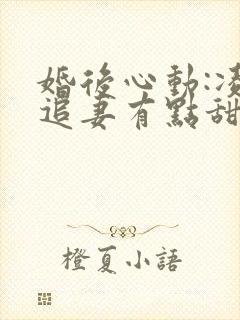 婚後心動:凌
追妻有點甜
橙夏小語